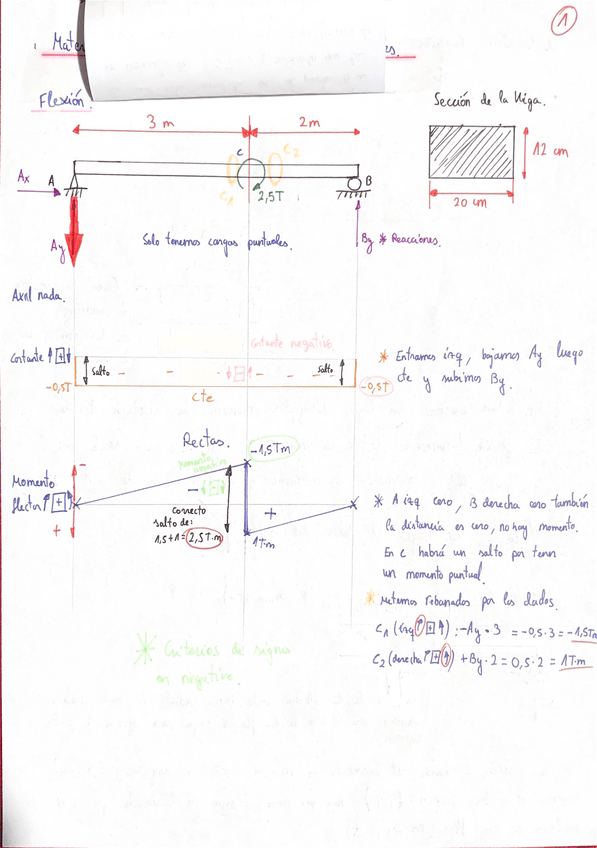 1
Mate
es.
Flexión.
Sección de la Viga.
3 m
2m
12 cm
20 cm
C
C1
C2
Ax
A
B
2,5T
Ay
Solo tenemos cargas puntuales.
By * Reacciones.
Axil nada.
Cortante negativo
Cortante
+
Salto
-
Salto
-0,5T
cte
-0,5T
* Entramos izq, bajamos Ay luego
cte y subimos By.
Rectas.
-1,5Tm
Momento
flector
+
-
+
Correcto
salto de:
1,5+1=2,5T·m
1Tm
+
* A izq cero, B derecha cero también
la distancia es cero, no hay momento.
En C habrá un salto por tener
un momento puntual.
* Metemos rebanadas por los dados.
C1 (izq + ) : -Ay · 3 = -0,5·3 = -1,5Tm
C2 (derecha + ) +By·2 = 0,5·2 = 1T·m
* Criterios de signos
en negativo.